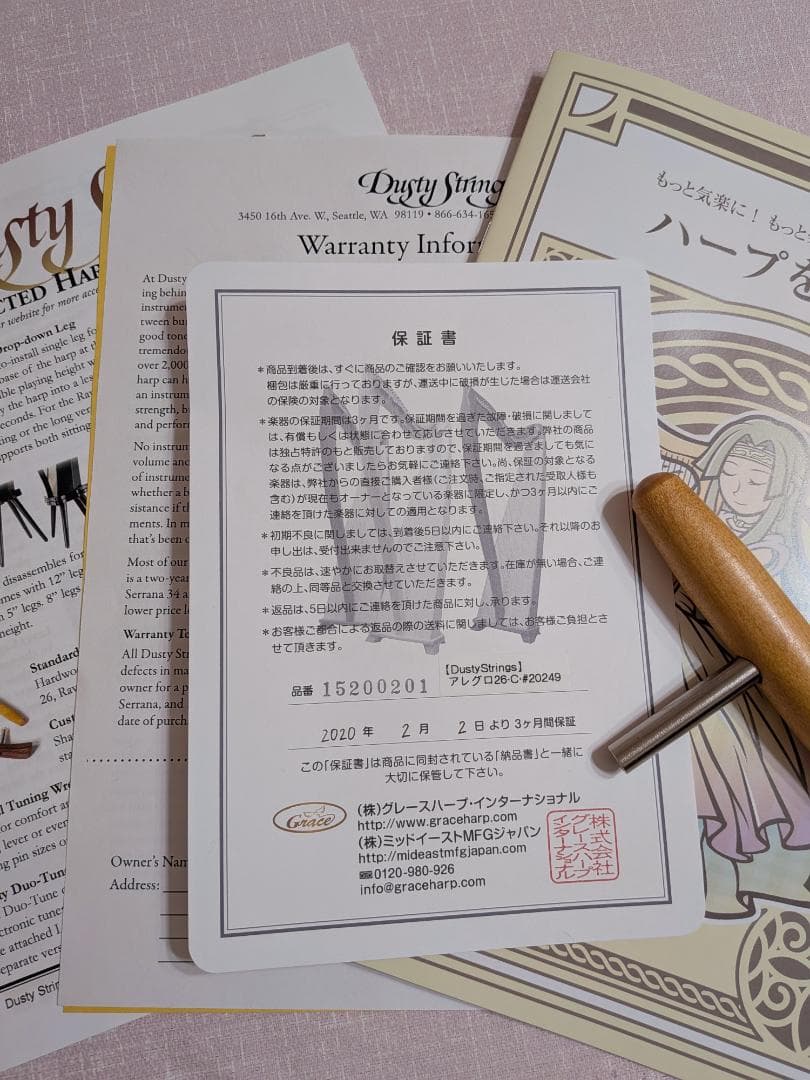 Dusty S
CTED HAR
r website for more acce
Drop-down Leg
o-install single leg fo
base of the harp at th
ble playing height w
y the harp into a les
econds. For the Rav
ting or the long ver
upports both sitting
disassembles for
mes with 12" leg
5" legs. 8" legs
height.
Standard
Hardwo
26, Rav
Cust
Sha
sta
l Tuning Wre
or comfort a
, lever or even
ing pin sizes o
ty Duo-Tune
Duo-Tune c
ectronic tune
e attached L
eparate vers
Dusty Strin
Dusty String
3450 16th Ave. W., Seattle, WA 98119 • 866-634-165
Warranty Infor
At Dusty
ing behin
instrumen
tween bu
good tone
tremendo
over 2,000
harp can h
an instrum
strength, br
and perform
No instrum
volume anc
of instrume
whether a b
sistance if th
ments. In m
that's been c
Most of our
is a two-yea
Serrana 34 a
lower price l
Warranty Te
All Dusty Str
defects in ma
owner for a p
Serrana, and
date of purch
Owner's Nam
Address:
もっと気楽に! もっと
ハープを
保証書
*商品到着後は、すぐに商品のご確認をお願いいたします。
梱包は厳重に行っておりますが、運送中に破損が生じた場合は運送会社
の保険の対象となります。
*楽器の保証期間は3ヶ月です。保証期間を過ぎた故障・破損に関しまして
は、有償もしくは状態に合わせて応じさせていただきます。弊社の商品
は独占特許のもと販売しておりますので、保証期間を過ぎましても気に
なる点がございましたらお気軽にご連絡下さい。尚、保証の対象となる
楽器は、弊社からの直接ご購入者様(ご注文時、ご指定された受取人様も
含む)が現在もオーナーとなっている楽器に限定し、かつ3ヶ月以内にご
連絡を頂けた楽器に対しての適用となります。
*初期不良に関しましては、到着後5日以内にご連絡下さい。それ以降のお
申し出は、受付出来ませんのでご注意下さい。
*不良品は、速やかにお取替えさせていただきます。在庫が無い場合、ご連
絡の上、同等品と交換させていただきます。
*返品は、5日以内にご連絡を頂けた商品に対し、承ります。
*お客様ご都合による返品の際の送料に関しましては、お客様ご負担とさ
せて頂きます。
品番 15200201
【DustyStrings】
アレグロ26・C・#20249
2020 年 2 月 2 日より3ヶ月間保証
この「保証書」は商品に同封されている「納品書」と一緒に
大切に保管して下さい。
Grace
(株)グレースハープ・インターナショナル
http://www.graceharp.com
(株)ミッドイーストMFGジャパン
http://mideastmfgjapan.com
0120-980-926
info@graceharp.com
株式会社
グレースハープ
インターナショナル